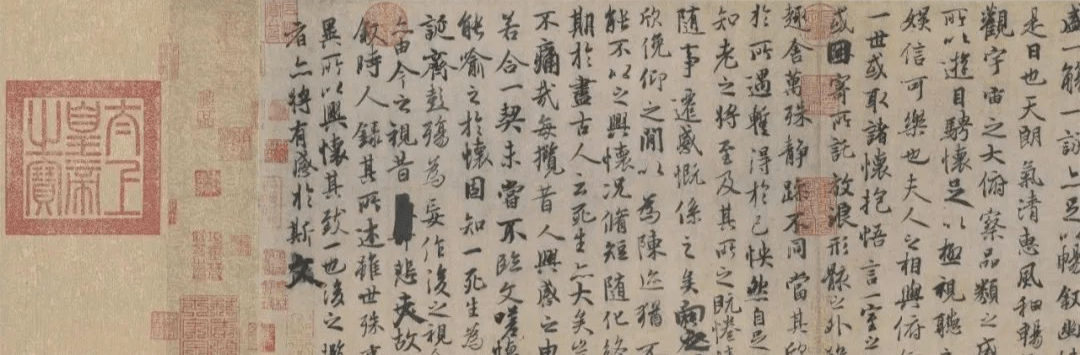 盛一觴一詠亦足以暢敘幽
是日也天朗氣清惠風和暢
觀宇宙之大俯察品類之盛
所以遊目騁懷足以極視聽之
娛信可樂也夫人之相與俯
一世或取諸懷抱悟言一室之
或因寄所託放浪形骸之外雖
趣舍萬殊靜躁不同當其欣
於所遇暫得於己怏然自足
知老之將至及其所之既惓情
隨事遷感慨係之矣向之
欣俛仰之閒以為陳迹猶不
能不以之興懷況脩短隨化終
期於盡古人云死生亦大矣豈
不痛哉每攬昔人興感之由
若合一契未嘗不臨文嗟悼
能喻之於懷固知一死生為
誕齊彭殤為妄作後之視今
亦由今之視昔悲夫故
敘時人錄其所述雖世殊事
異所以興懷其致一也後之攬
者亦將有感於斯文
太上
皇帝
之寶